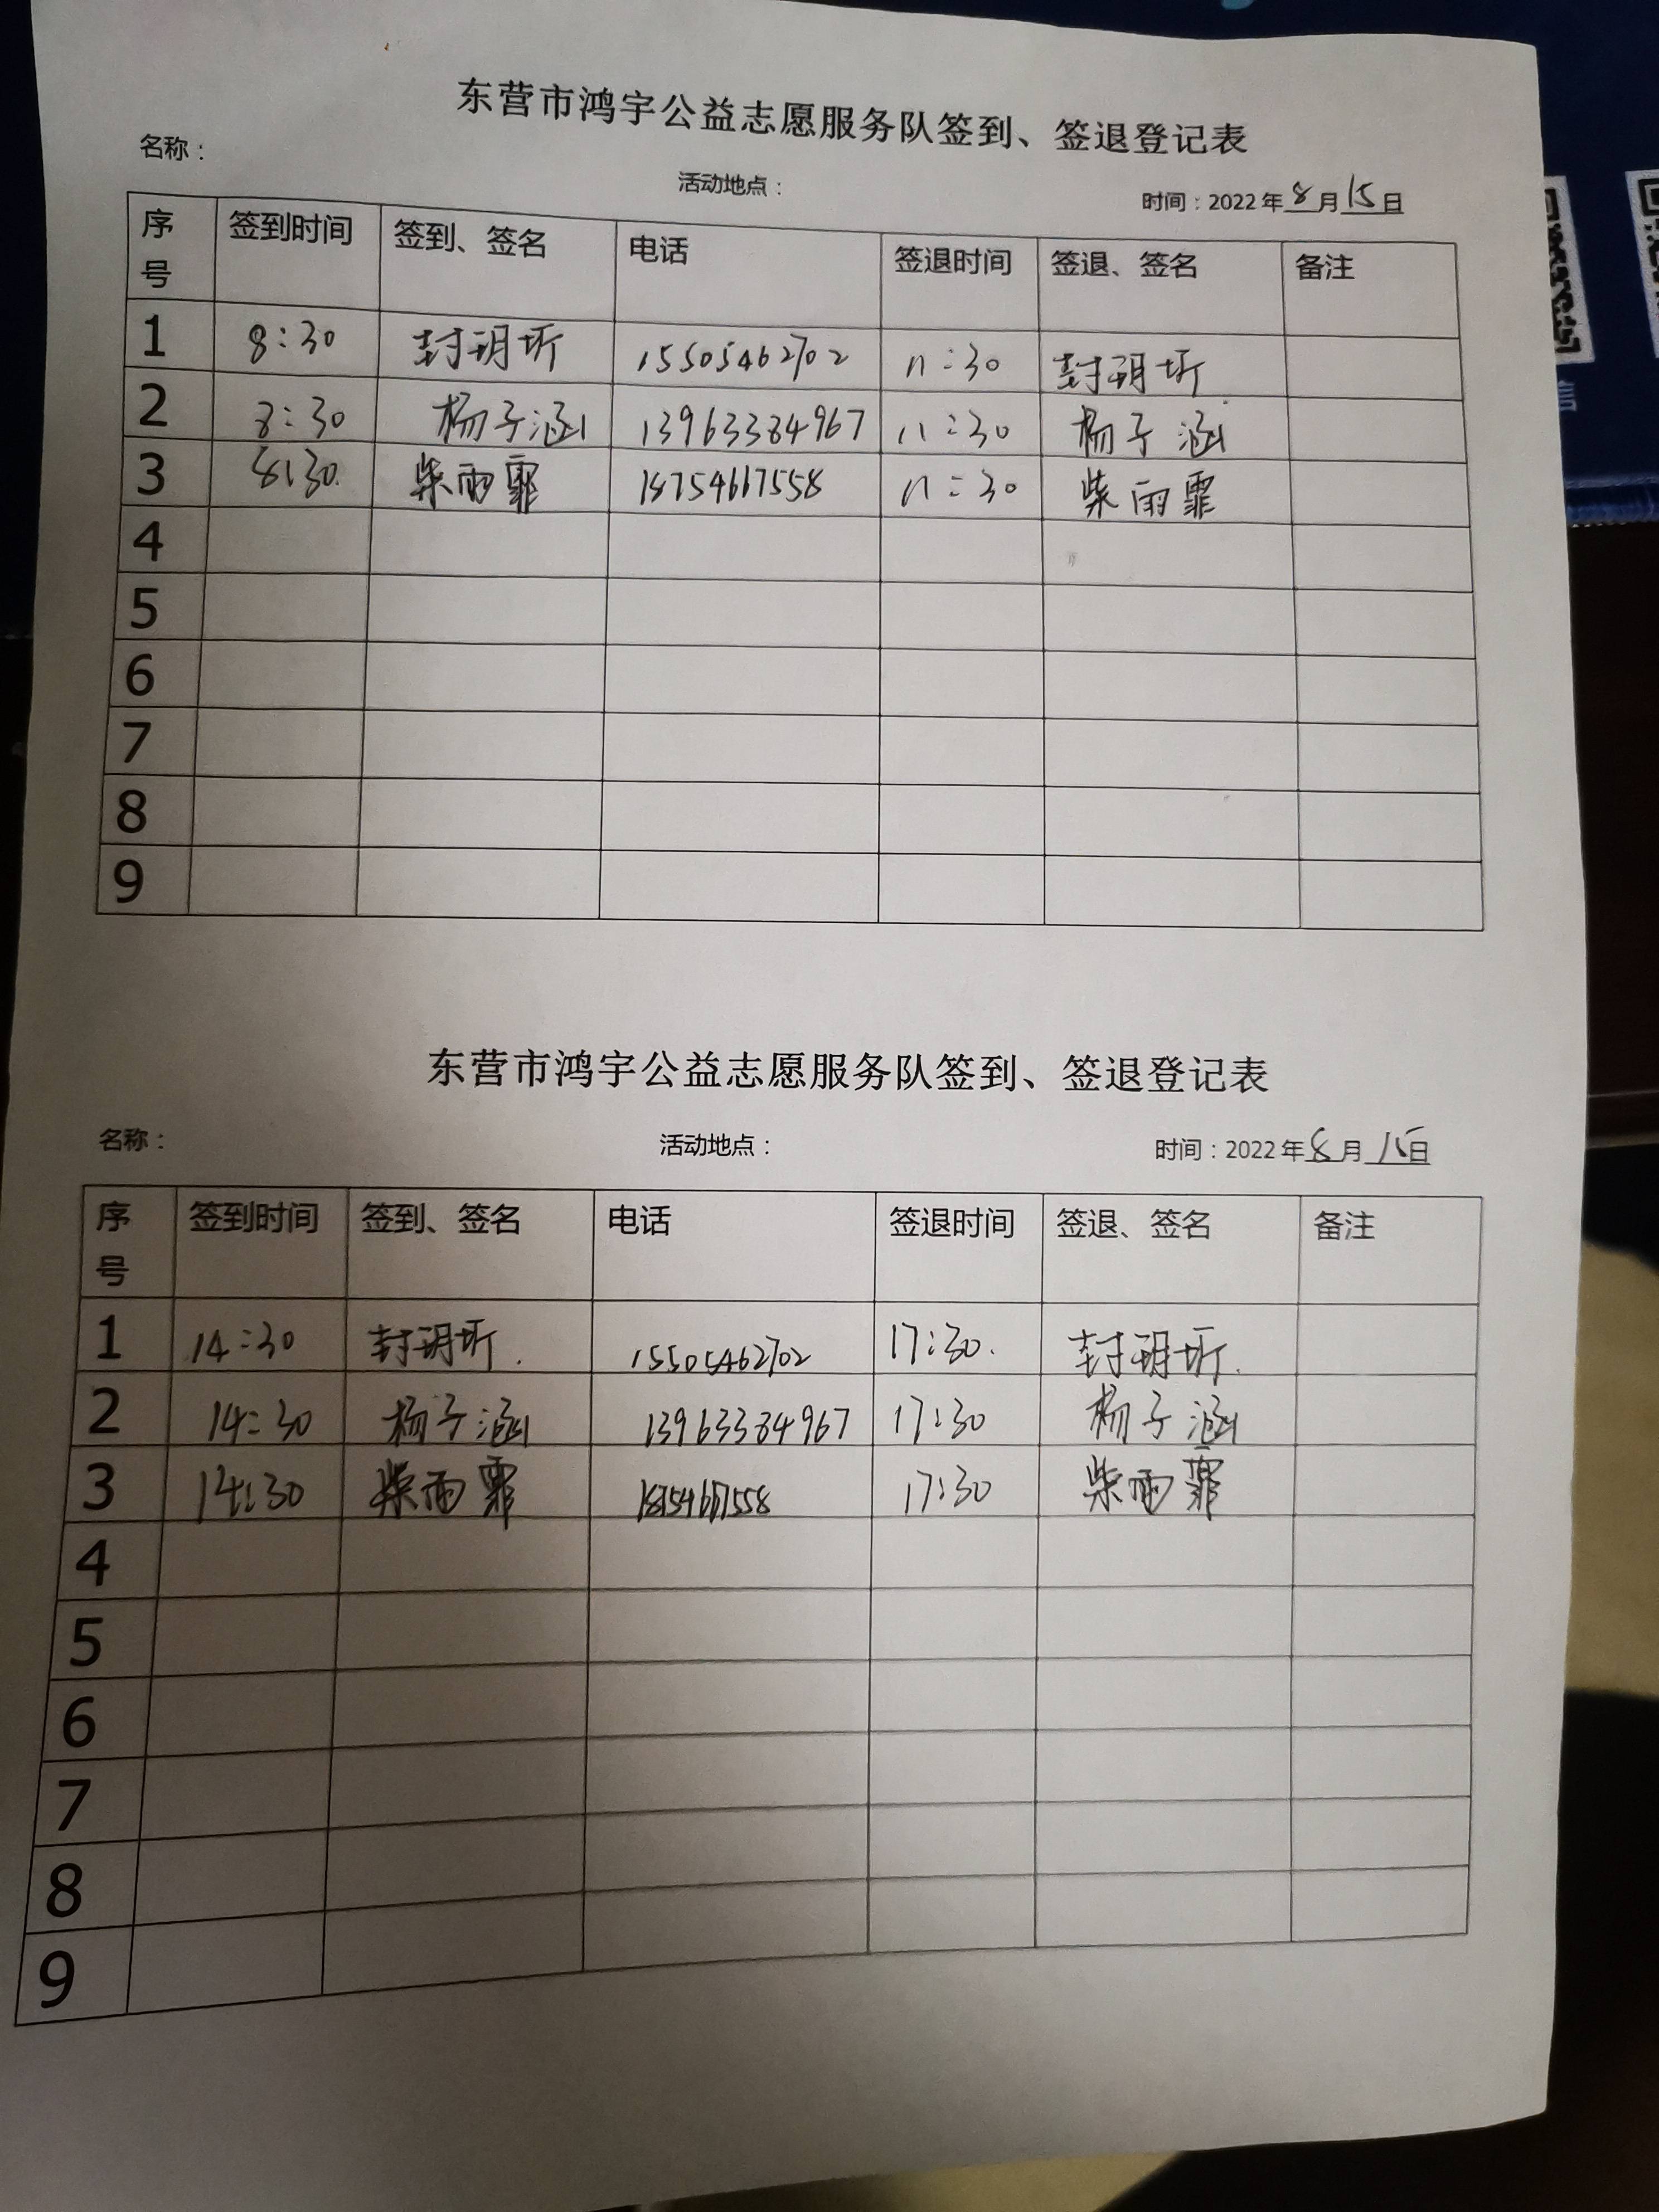 东营市鸿宇公益志愿服务队签到、签退登记表
名称：
活动地点：
时间：2022年8月15日
序号 签到时间 签到、签名 电话 签退时间 签退、签名 备注
1 8:30 封玥圻 15505462702 11:30 封玥圻
2 8:30 杨子涵 13963384967 11:30 杨子涵
3 8:30 柴雨霏 18754667558 11:30 柴雨霏
4
5
6
7
8
9
东营市鸿宇公益志愿服务队签到、签退登记表
名称： 活动地点： 时间：2022年8月15日
序号 签到时间 签到、签名 电话 签退时间 签退、签名 备注
1 14:30 封玥圻 15505462702 17:30 封玥圻
2 14:30 杨子涵 13963384967 17:30 杨子涵
3 14:30 柴雨霏 18754667558 17:30 柴雨霏
4
5
6
7
8
9